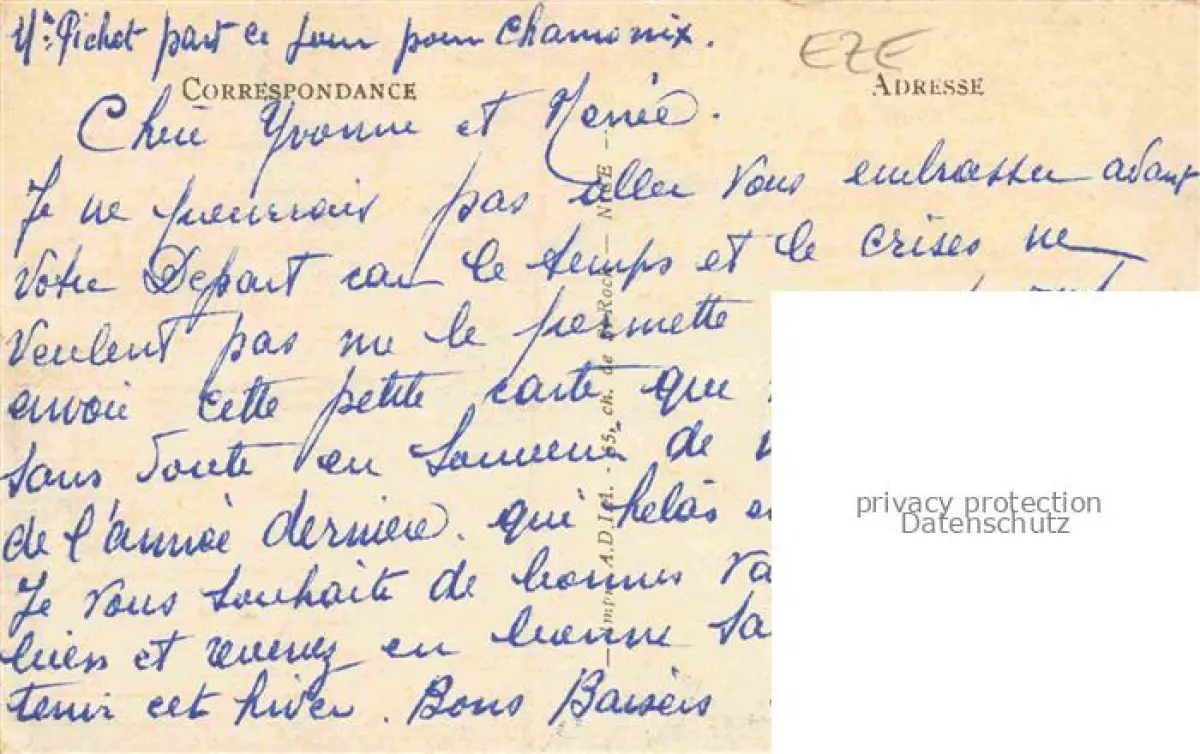 Mr Pichot part ce jour pour Chamonix.
EZE
CORRESPONDANCE
ADRESSE
Chère Yvonne et Renée.
Je ne pourrais pas aller vous embrasser avant
votre Départ car le temps et le crises ne
veulent pas me le permette
envoie cette petite carte que
sans doute en souvenir de
de l'année dernière. qui helàs
Je vous souhaite de bonnes va
bien et revenez en bonne sa
tenir cet hiver. Bons Baisers
Impr. A.D.Int. - 55, ch. de St-Roch — NICE
privacy protection
Datenschutz